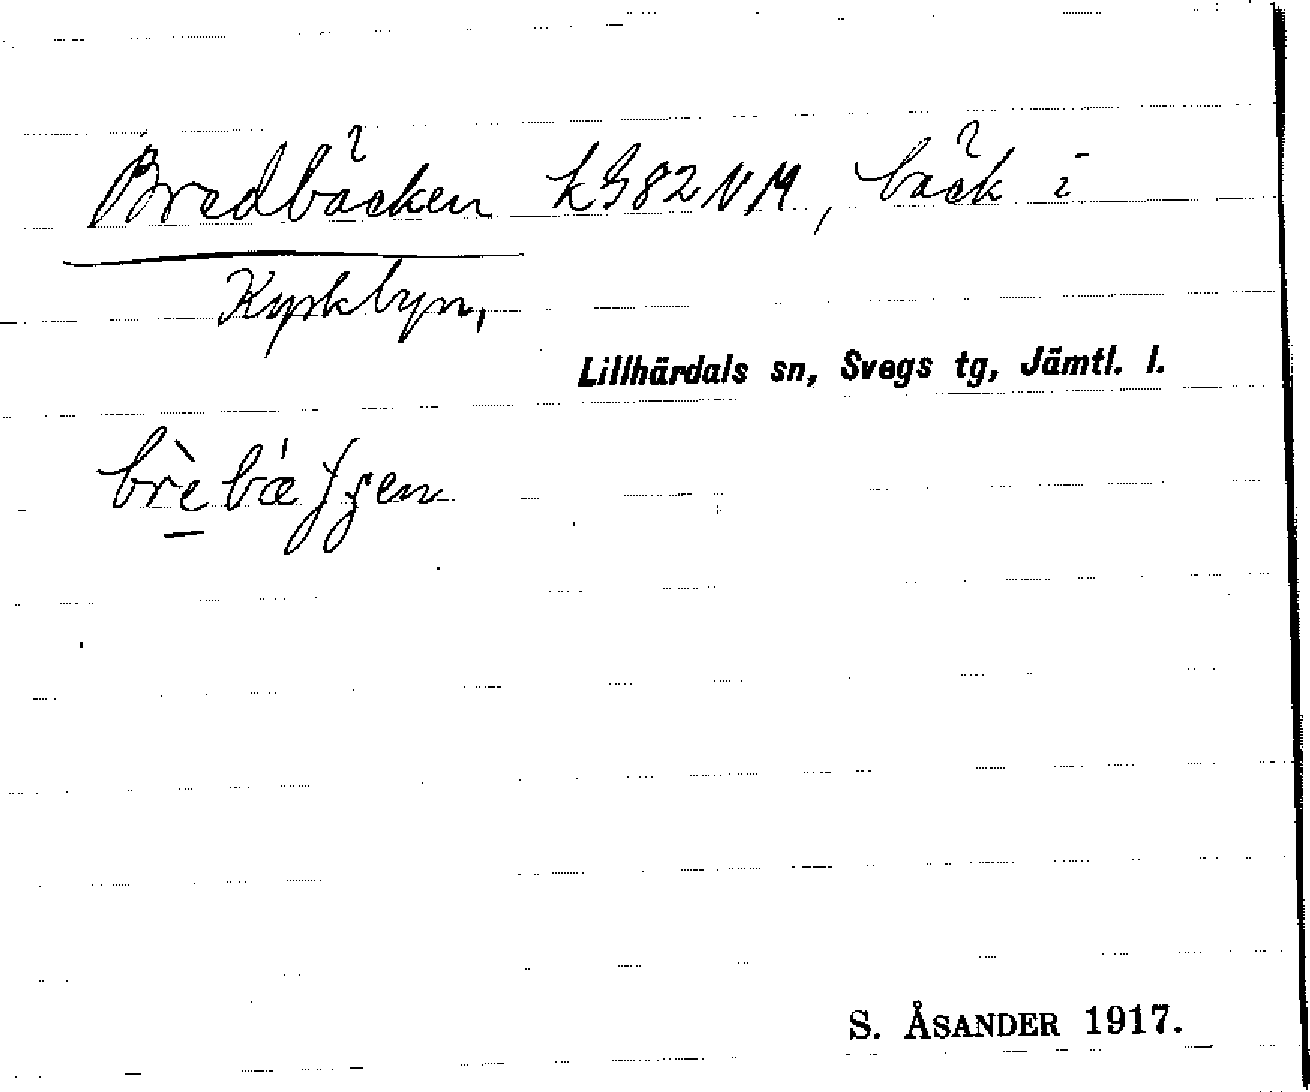 Bredbäcken KG82NM, bäck i
Kyrkbyn,
Lillhärdals sn, Svegs tg, Jämtl. l.
S. ÅSANDER 1917.